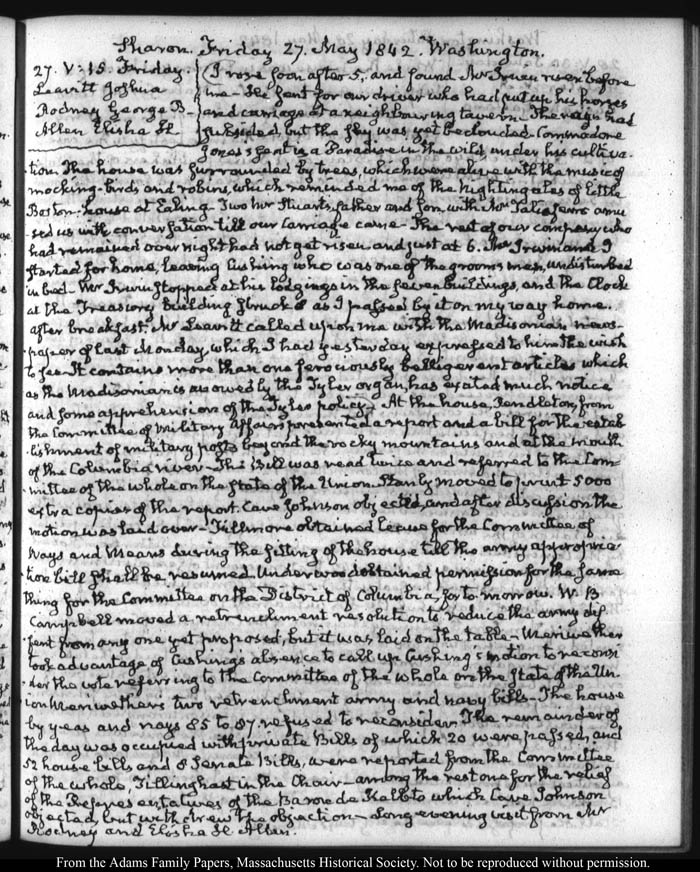 Sharon. Friday 27. May 1842. Washington.
27. V: 15. Friday.
Leavitt Joshua
Rodney George B-
Allen Elisha H
I rose soon after 5, and found Mr Irwin risen before
me- He sent for our driver who had put up his horses
and carriage at a neighbouring tavern. The rain had
subsided, but the sky was yet beclouded. Commodore
Jones's seat is a Paradise in the wild, under his cultiva-
tion. The house was surrounded by trees, which were alive with the music of
mocking-birds and robins, which reminded me of the nightingales of Little
Boston-house at Ealing. Two Mr Stuarts, father and son, with Mr Taliaferro amu-
sed us with conversation till our Carriage came- The rest of our company who
had remained over night had not yet risen and just at 6. Mr Irwin and I
started for home, leaving Cushing who was one of the grooms men, undisturbed
in bed. Mr Irwin stopped at his lodgings in the seven buildings, and the Clock
at the Treasury building struck 8 as I passed by it on my way home.
after breakfast. Mr Leavitt called upon me with the Madisonian news-
paper of last Monday, which I had yesterday expressed to him the wish
to see- It contains more than one ferociously belligerent articles which
as the Madisonian is avowedly the Tyler organ, has excited much notice
and some apprehensions of the Tyler policy. At the house, Pendleton, from
the Committee of military Affairs presented a report and a bill for the estab-
lishment of military posts beyond the rocky mountains and at the mouth
of the Columbia river- The Bill was read twice and referred to the Com-
mittee of the whole on the State of the Union. Stanly moved to print 5000
extra copies of the report. Cave Johnson objected, and after discussion the
motion was laid over- Fillmore obtained leave for the Committee of
Ways and Means during the sitting of the house till the army appropria-
tion bill shall be resumed. Underwood obtained permission for the same
thing for the Committee on the District of Columbia, for to morrow. W. B
Campbell moved a retrenchment resolution to reduce the army dif-
ferent from any one yet proposed, but it was laid on the table- Meriwether
took advantage of Cushing's absence to call up Cushing's motion to reconsi-
der the vote referring to the Committee of the whole on the State of the Un-
ion Meriwethers two retrenchment army and navy bills- The house
by yeas and nays 85 to 87. refused to reconsider. The remainder of
the day was occupied with private Bills of which 20 were passed, and
52 house bills and 8 Senate Bills, were reported from the Committee
of the whole, Tillinghast in the Chair- among the rest one for the relief
of the Representatives of the Baron de Kalb to which Cave Johnson
objected, but withdrew the objection- Long evening visit from Mr
Rodney and Elisha H Allen.
From the Adams Family Papers, Massachusetts Historical Society. Not to be reproduced without permission.